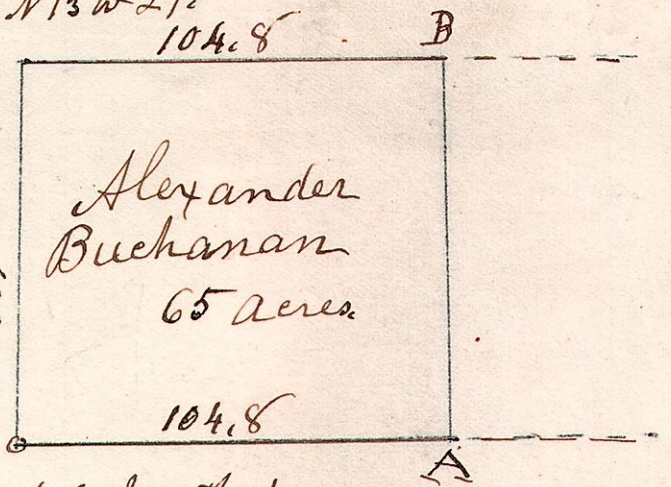 104.8
B
Alexander
Buchanan
65 acres.
104.8
A